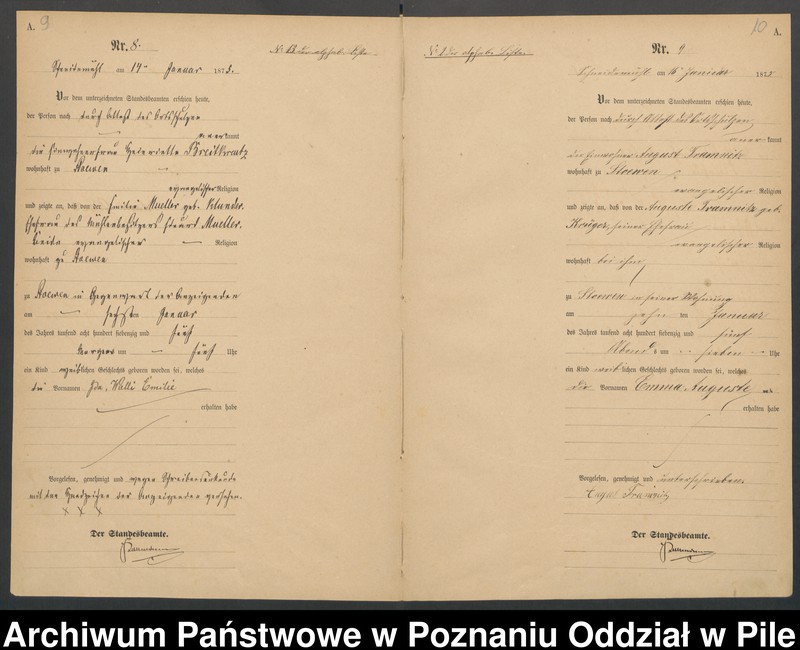 A. 9.
Nr. 8.
Schneidemühl am 14ten Januar 1875.
Vor dem unterzeichneten Standesbeamten erschien heute,
der Person nach durch Attest des Ortsschulzen
anerkannt
die Einwohnerfrau Henriette Breitkreutz
wohnhaft zu Stoewen
evangelischer Religion
und zeigte an, daß von der Emilie Mueller geb. Klunder.
Ehefrau des Mühlenbesitzers Eduard Mueller.
beide evangelischer Religion
wohnhaft zu Stoewen
zu Stoewen in Gegenwart der Anzeigenden
am sechsten Januar
des Jahres tausend acht hundert siebenzig und fünf
Morgens um fünf Uhr
ein Kind weiblichen Geschlechts geboren worden sei, welches
die Vornamen Ida, Walli Emilie
erhalten habe
Vorgelesen, genehmigt und wegen Schreibensunkunde
mit den Handzeichen der Anzeigenden versehen.
x x x
Der Standesbeamte.
No 13 der alphab. Liste
10 A.
No 1 der alphab. Liste
Nr. 9
Schneidemühl am 16 Januar 1875
Vor dem unterzeichneten Standesbeamten erschien heute,
der Person nach durch Attest des Ortsschulzen
anerkannt
der Einwohner August Tramnitz
wohnhaft zu Stoewen
evangelischer Religion
und zeigte an, daß von der Auguste Tramnitz geb.
Krüger, seiner Ehefrau
evangelischer Religion
wohnhaft bei ihm
zu Stoewen in seiner Wohnung
am zehn ten Januar
des Jahres tausend acht hundert siebenzig und fünf
Abends um sieben Uhr
ein Kind weiblichen Geschlechts geboren worden sei, welches
die Vornamen Emma Auguste
erhalten habe
Vorgelesen, genehmigt und unterschrieben
August Tramnitz
Der Standesbeamte.
Archiwum Państwowe w Poznaniu Oddział w Pile